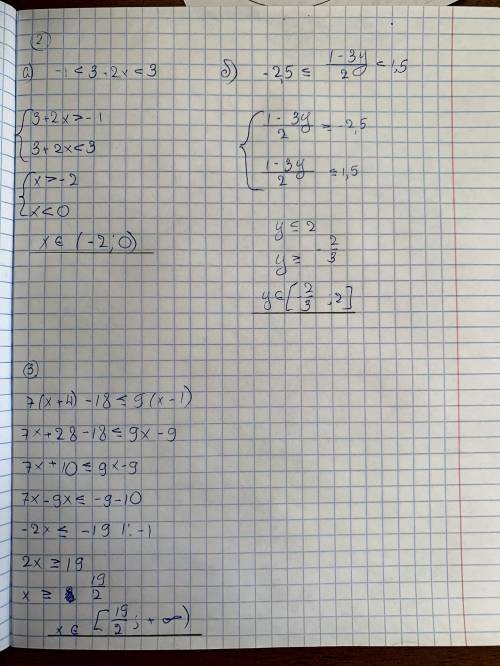 2
а) -1 < 3 + 2x < 3
{ 3+2x > -1
3+2x < 3
{ x > -2
x < 0
x ∈ (-2; 0)
б) -2,5 ≤ (1-3y)/2 ≤ 1,5
{ (1-3y)/2 ≥ -2,5
(1-3y)/2 ≤ 1,5
y ≤ 2
y ≥ -2/3
y ∈ [-2/3 ; 2]
3
7(x+4) - 18 ≤ 9(x-1)
7x+28-18 ≤ 9x-9
7x+10 ≤ 9x-9
7x-9x ≤ -9-10
-2x ≤ -19 |: -1
2x ≥ 19
x ≥ 19/2
x ∈ [19/2 ; +∞)